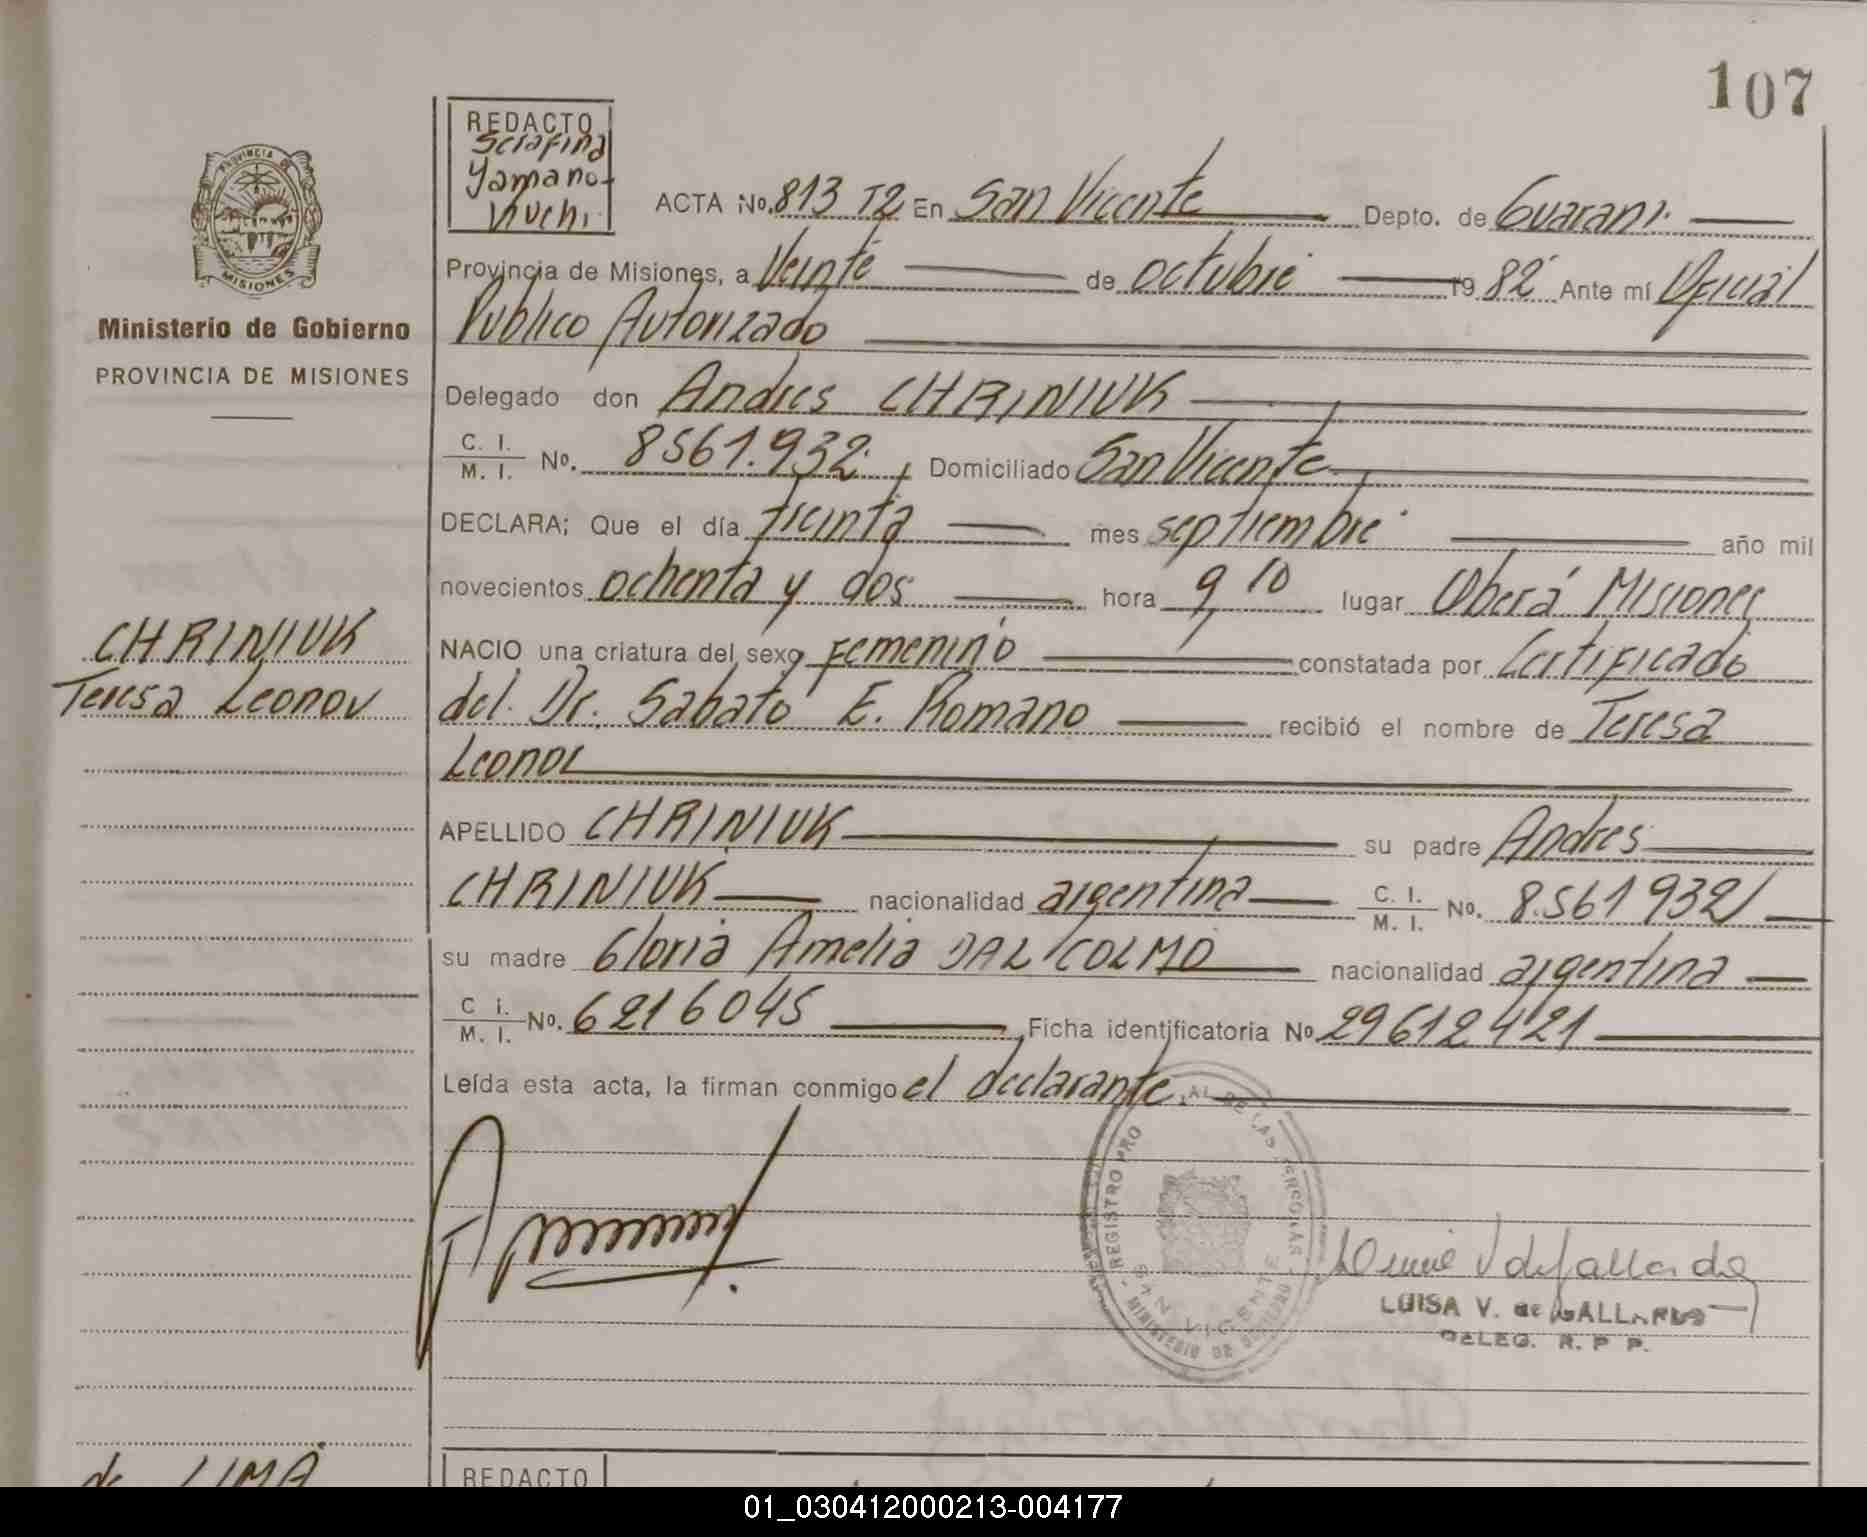 107
REDACTO
Serafina
Yamano-
kuchi
PROVINCIA DE
MISIONES
Ministerio de Gobierno
PROVINCIA DE MISIONES
ACTA No. 813 T2 En San Vicente Depto. de Guaraní
Provincia de Misiones, a Veinte de octubre 1982 Ante mí Oficial
Publico Autorizado
Delegado don Andres CHRINIUK
C. I.
M. I. No. 8561.932 Domiciliado San Vicente
DECLARA; Que el día treinta mes septiembre año mil
novecientos ochenta y dos hora 9 10 lugar Oberá Misiones
CHRINIUK
Teresa Leonor
NACIO una criatura del sexo Femenino constatada por Certificado
del Dr. Sabato E. Romano recibió el nombre de Teresa
Leonor
APELLIDO CHRINIUK su padre Andres
CHRINIUK nacionalidad argentina C. I. M. I. No. 8.561932
su madre Gloria Amelia DAL COLMO nacionalidad argentina
C i. M. I. No. 6216045 Ficha identificatoria No 29612421
Leída esta acta, la firman conmigo el declarante
REGISTRO PRO AL DE LAS PERSONAS
SAN VICENTE
MINISTERIO DE GOBIERNO
LUISA V. de GALLARDO
DELEG. R. P. P.
de LIMA
REDACTO
01_030412000213-004177